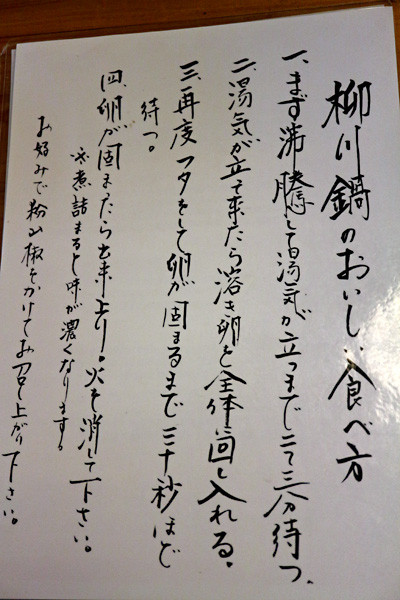 柳川鍋のおいしい食べ方
一、まず沸騰して湯気が立つまで二〜三分待つ、
二、湯気が立って来たら溶き卵を全体に回し入れる。
三、再度フタをして卵が固まるまで三十秒ほど
待つ。
四、卵が固またら出来上り。火を消して下さい。
※煮詰まると味が濃くなります。
お好みで粉山椒をかけてお召し上がり下さい。